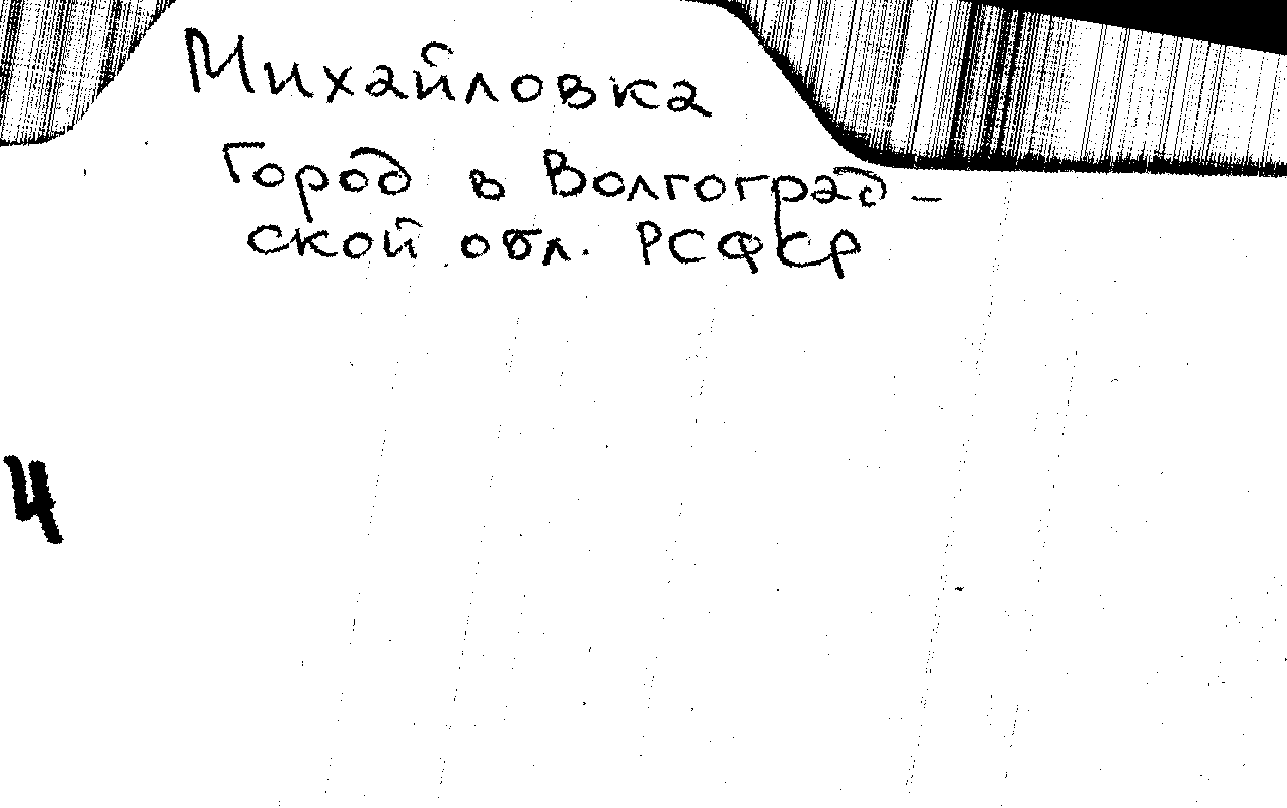 Михайловка
Город в Волгоград-
ской обл. РСФСР
Ч